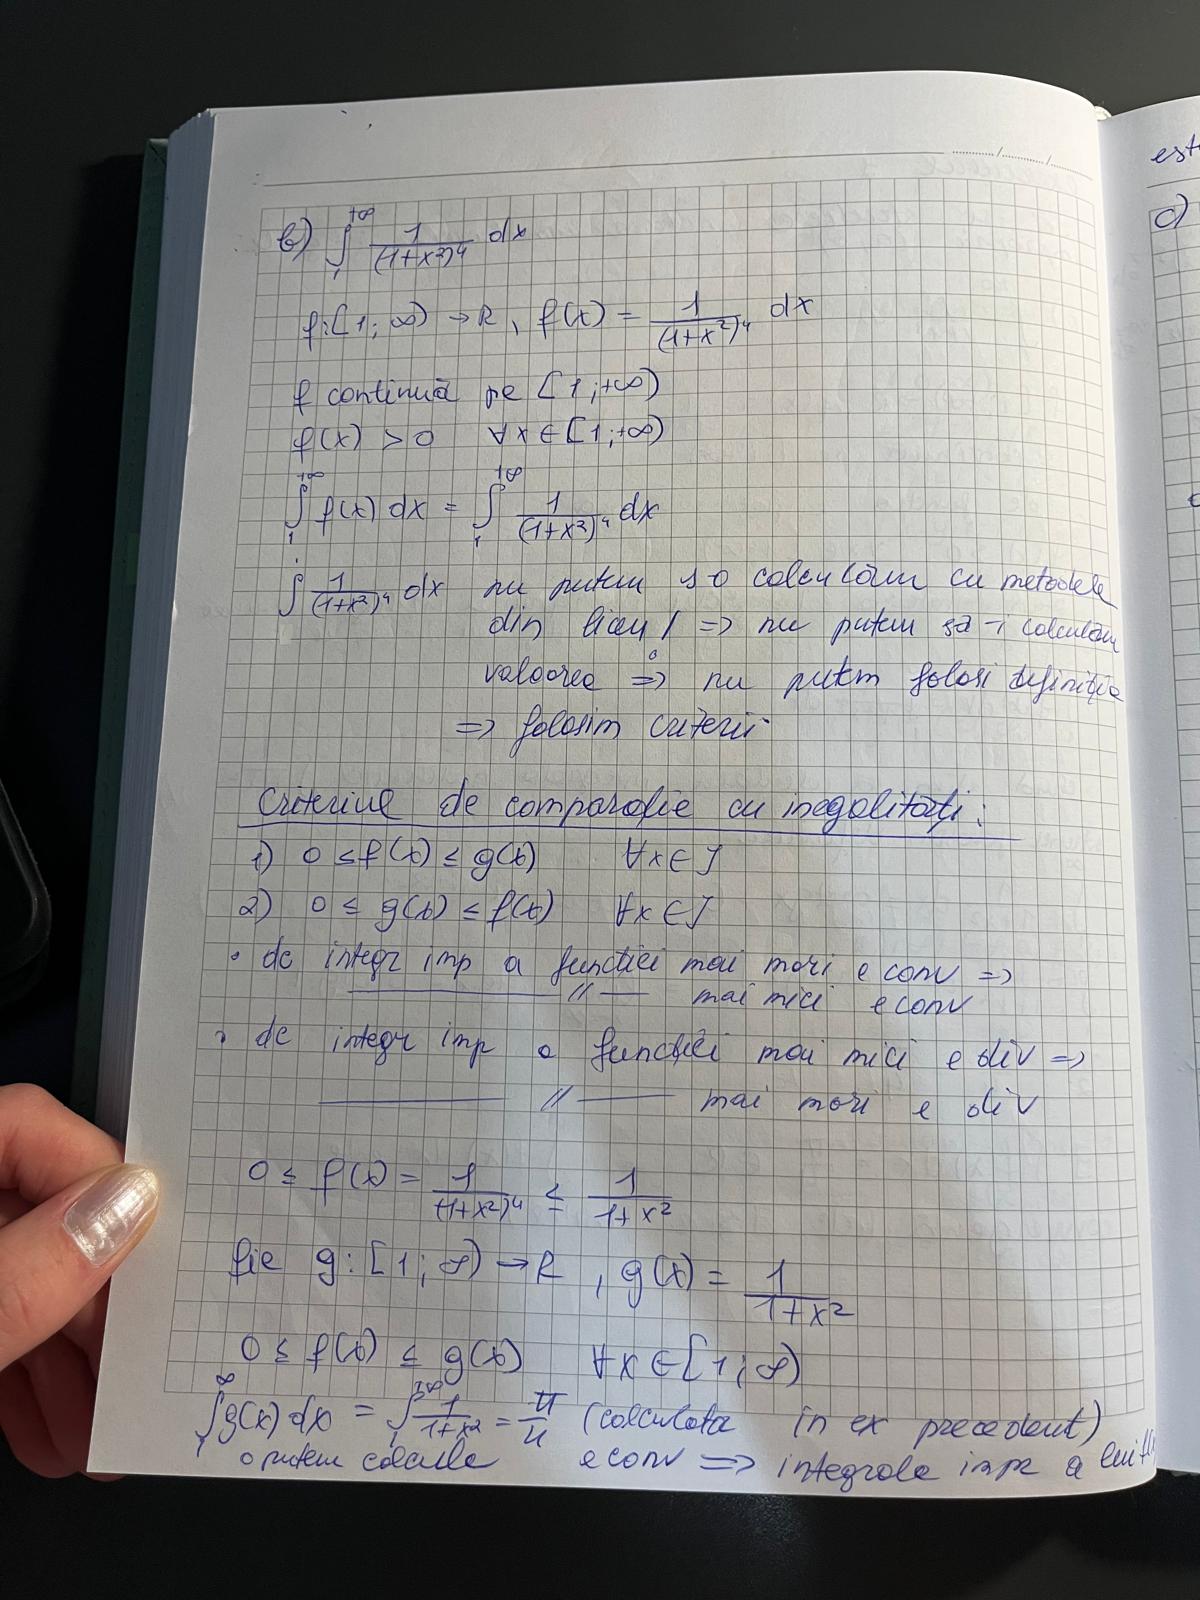 b) ∫₁^{+∞} 1/(1+x²)⁴ dx
f:[1; ∞) → R, f(x) = 1/(1+x²)⁴ dx
f continuă pe [1; +∞)
f(x) > 0 ∀x∈[1; +∞)
∫₁^{+∞} f(x) dx = ∫₁^{+∞} 1/(1+x²)⁴ dx
∫ 1/(1+x²)⁴ dx nu putem s o calculăm cu metodele
din liceu / => nu putem să-i calculăm
valoarea => nu putem folosi definiția
=> folosim criterii
Criteriul de comparație cu inegalități:
1) 0 ≤ f(x) ≤ g(x) ∀x∈J
2) 0 ≤ g(x) ≤ f(x) ∀x∈J
• dc integr imp a funcției mai mari e conv =>
——— // — mai mici e conv
• dc integr imp a funcției mai mici e div =>
——— // ——— mai mari e div
0 ≤ f(x) = 1/(1+x²)⁴ ≤ 1/(1+x²)
fie g: [1; ∞) → R, g(x) = 1/(1+x²)
0 ≤ f(x) ≤ g(x) ∀x∈[1; ∞)
∫₁^∞ g(x) dx = ∫₁^{+∞} 1/(1+x²) = π/4 (calculata in ex precedent)
o putem calcula e conv => integrala impr a lui f
est
c)